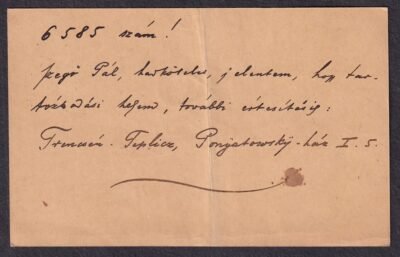 6585 szám!
Szegő Pál, hadköteles, jelentem, hogy tar-
tózkodási helyem, további értesitésig:
Trencsén-Teplicz, Ponjatowsky-ház I. 5.